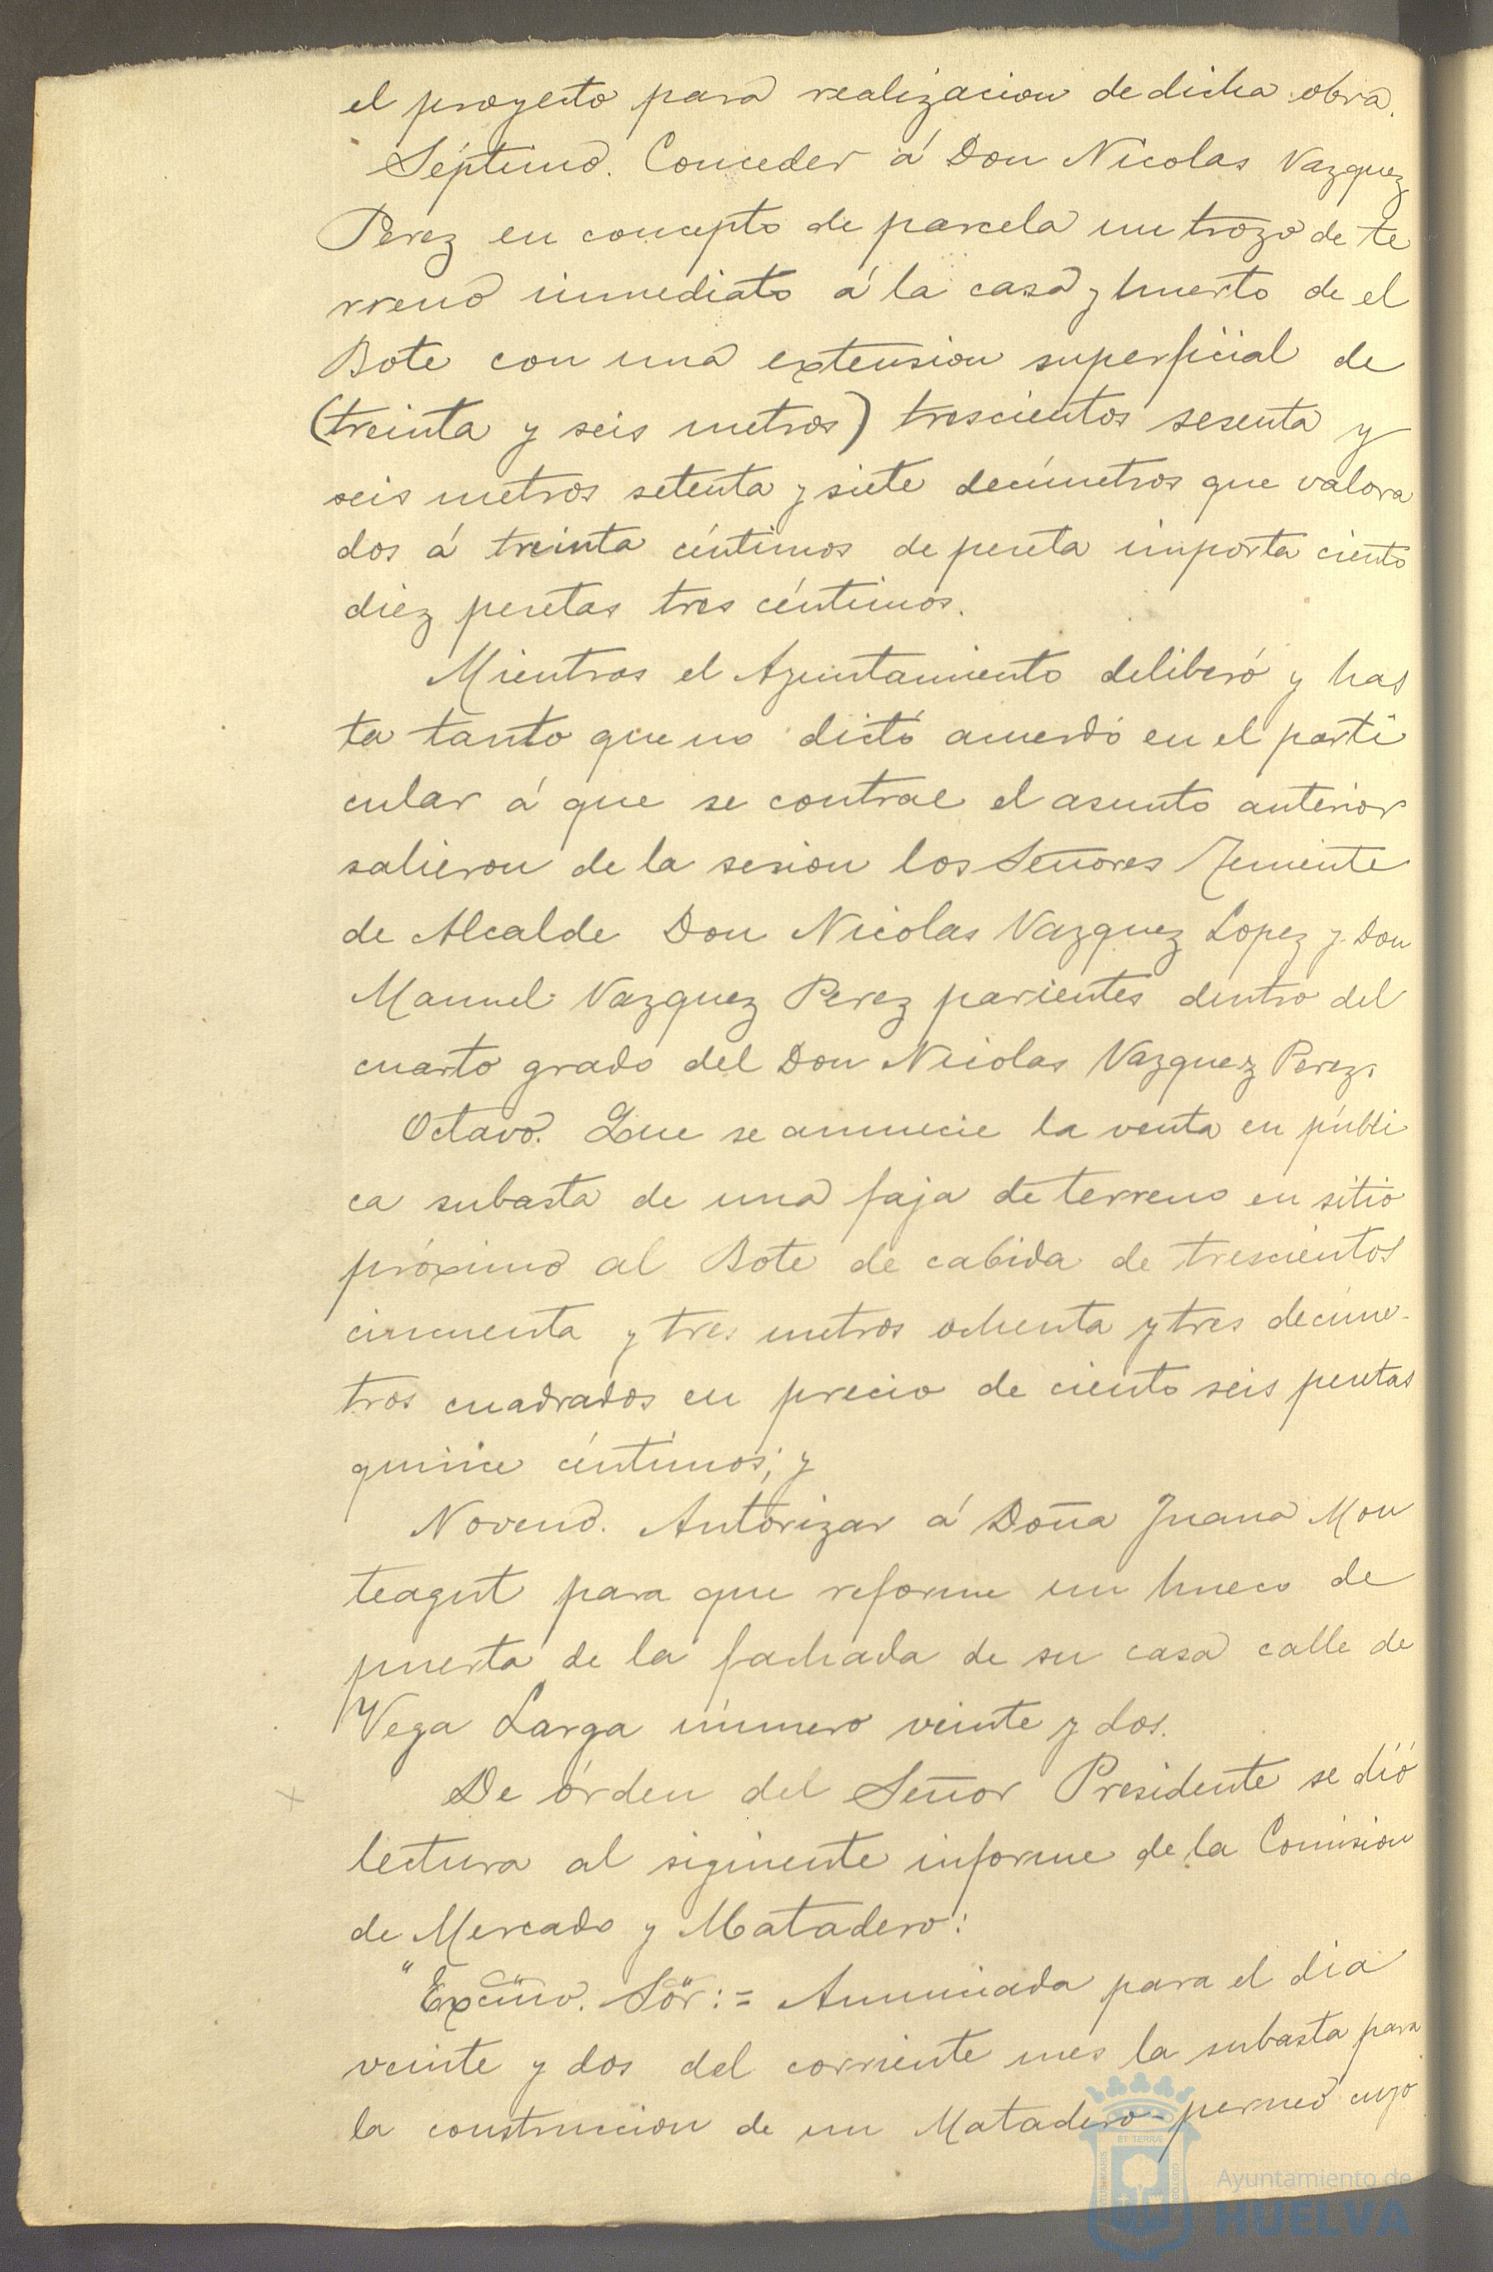 el proyecto para realizacion de dicha obra.
Séptimo. Conceder á Don Nicolas Vazquez
Perez en concepto de parcela un trozo de te
rreno inmediato á la casa y huerto de el
Bote con una extension superficial de
(treinta y seis metros) trescientos sesenta y
seis metros setenta y siete decímetros que valora
dos á treinta céntimos de peseta importa ciento
diez pesetas tres céntimos.
Mientras el Ayuntamiento deliberó y has
ta tanto que no dictó acuerdo en el parti
cular á que se contrae el asunto anterior
salieron de la sesion los Señores Teniente
de Alcalde Don Nicolas Vazquez Lopez y Don
Manuel Vazquez Perez parientes dentro del
cuarto grado del Don Nicolas Vazquez Perez.
Octavo. Que se anuncie la venta en públi
ca subasta de una faja de terreno en sitio
próximo al Bote de cabida de trescientos
cincuenta y tres metros ochenta y tres decíme-
tros cuadrados en precio de ciento seis pesetas
quince céntimos; y
Noveno. Autorizar á Doña Juana Mon
teagut para que reforme un hueco de
puerta de la fachada de su casa calle de
Vega Larga número veinte y dos.
De órden del Señor Presidente se dió
lectura al siguiente informe de la Comision
de Mercado y Matadero:
"Excmo. Sor:= Anunciada para el dia
veinte y dos del corriente mes la subasta para
la construccion de un Matadero-perneo cuyo
Ayuntamiento de
HUELVA